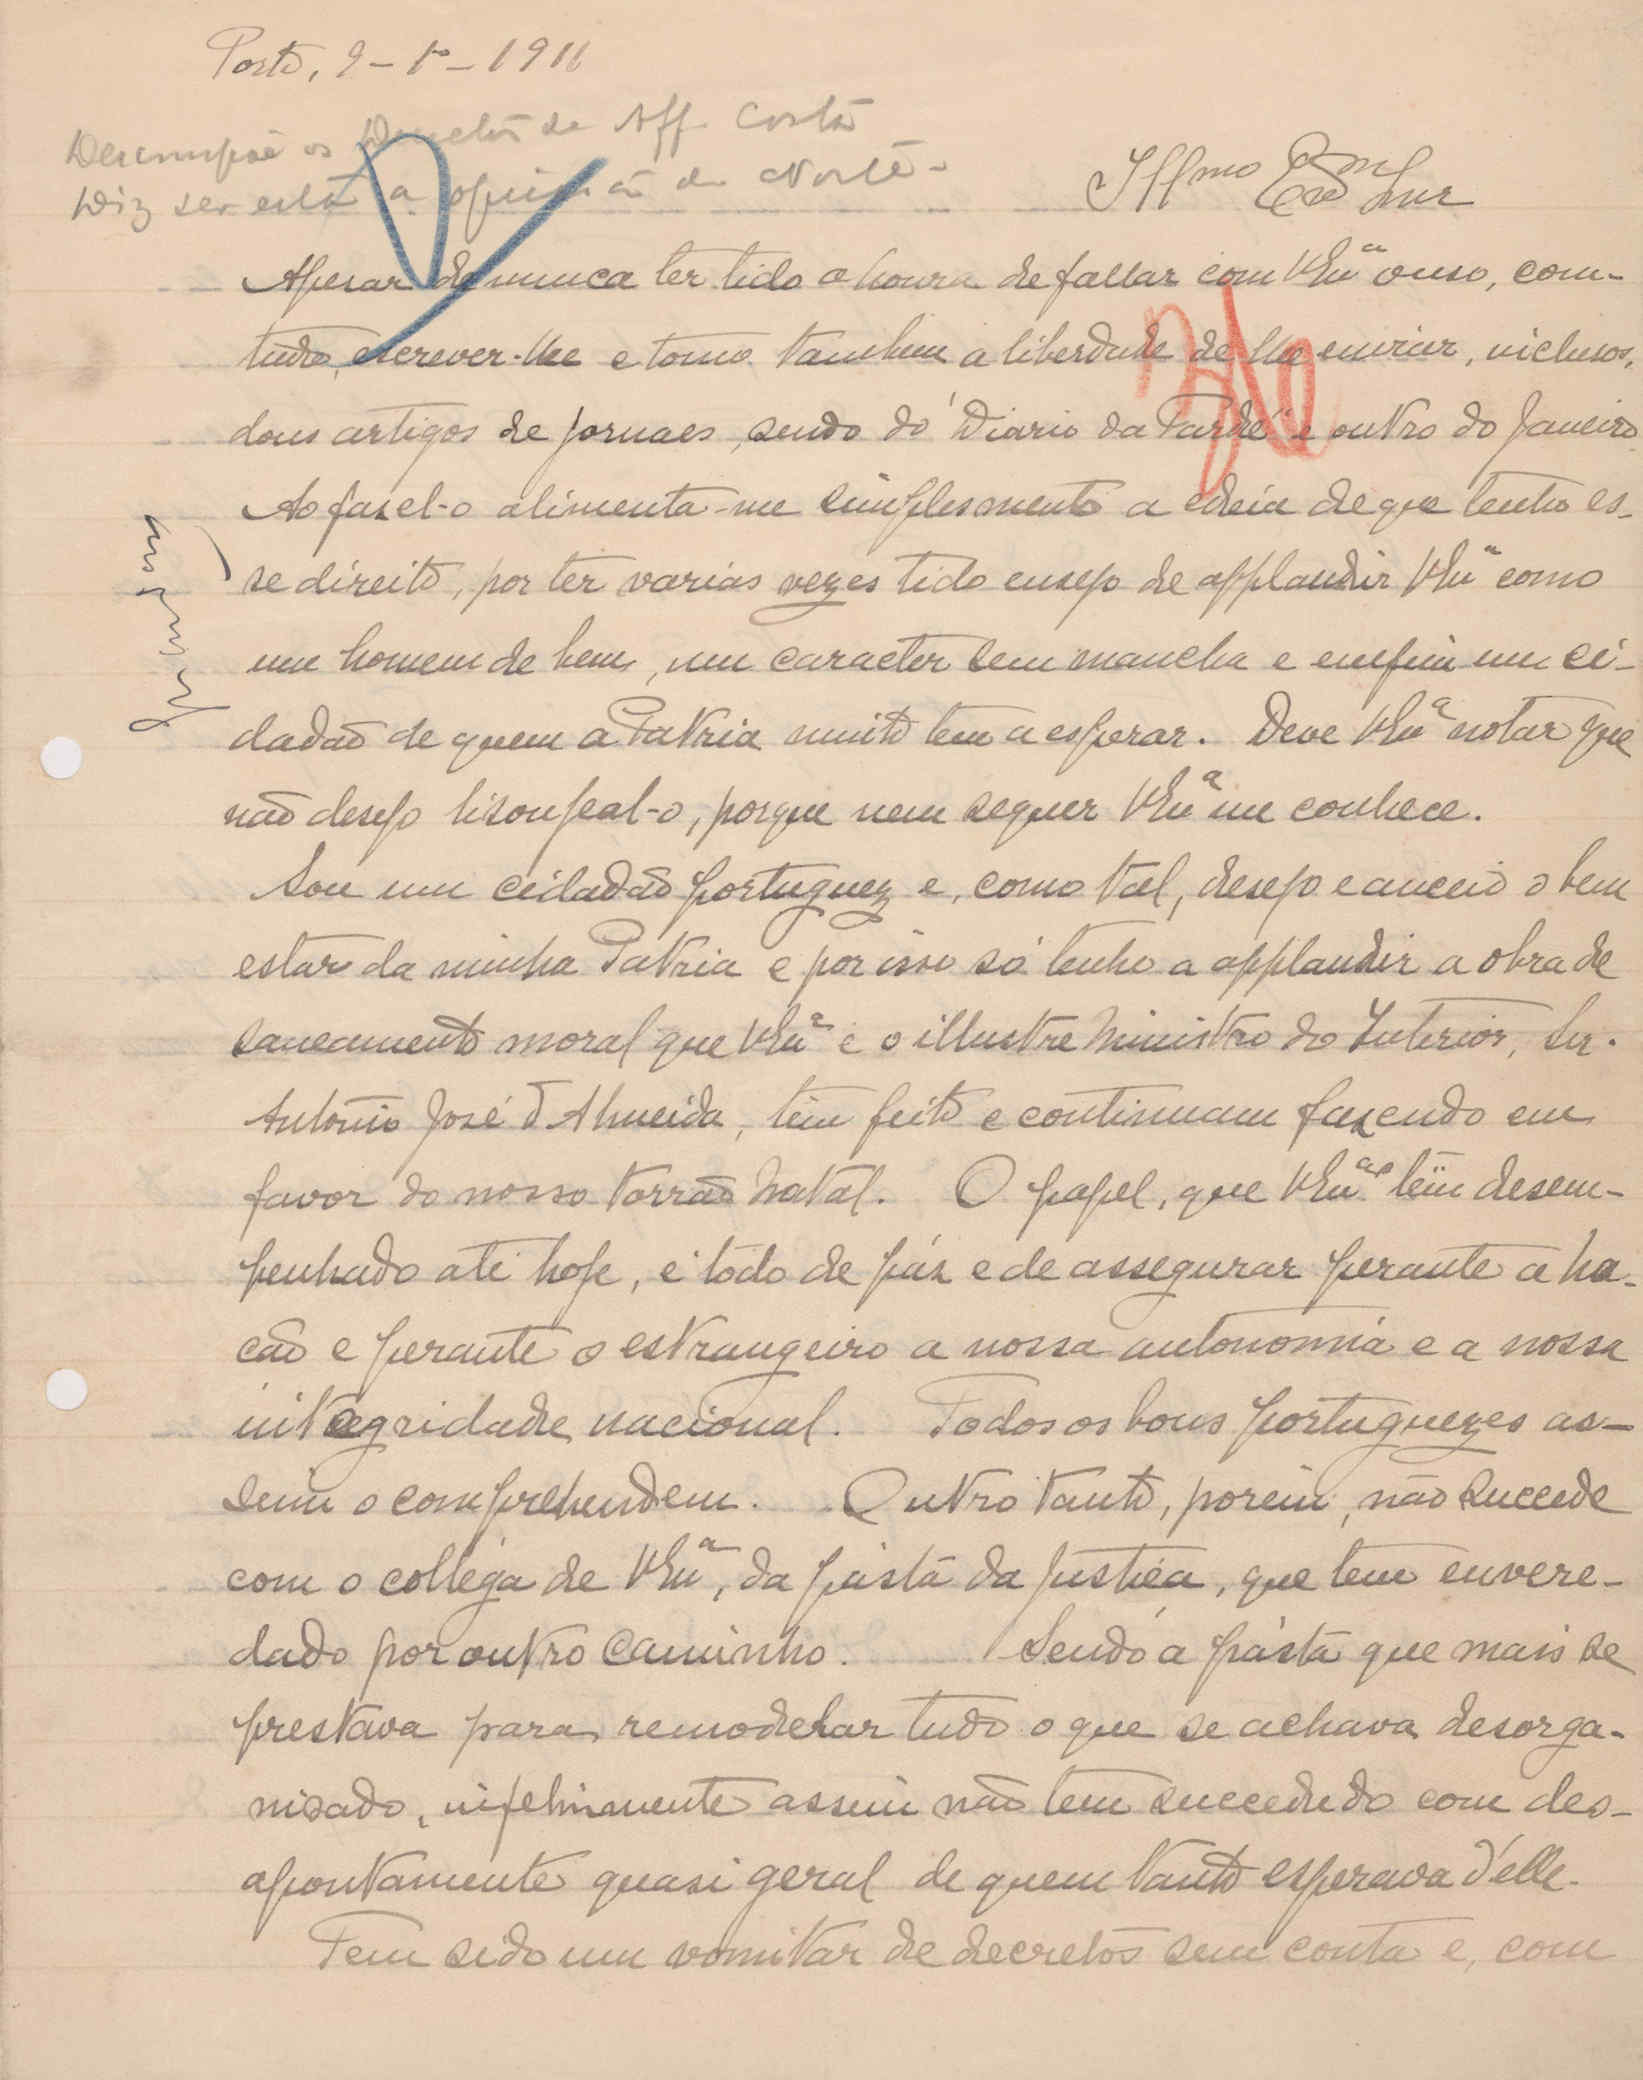 Porto, 9-1º-1911
Descompõe os Decretos de Aff. Costa
Diz ser esta a opinião do Norte-
Illmo Exmo Snr
Apesar de nunca ter tido a honra de fallar com V Exª ouso, com-
tudo, escrever-lhe e tomo tambem a liberdade de lhe enviar, inclusos,
dous artigos de jornaes, sendo do "Diario da Tarde" e outro do Janeiro.
Ao fazel-o alimenta-me simplesmente a ideia de que tenho es-
se direito, por ter varias vezes tido ensejo de applaudir V Exª como
um homem de bem, um caracter sem mancha e emfim um ci-
dadão de quem a Patria muito tem a esperar. Deve V Exª notar que
não desejo lisonjeal-o, porque nem sequer V Exª me conhece.
Sou um cidadão portuguez e, como tal, desejo e anceio o bem
estar da minha Patria e por isso só tenho a applaudir a obra de
saneamento moral que V Exª e o illustre Ministro do Interior, Snr.
Antonio José d'Almeida, têm feito e continuam fazendo em
favor do nosso torrão Natal. O papel, que V Exªs têm desem-
penhado até hoje, é todo de páz e de assegurar perante a Na-
ção e perante o estrangeiro a nossa autonomia e a nossa
integridade nacional. Todos os bons portuguezes as-
sim o comprehendem. Outro tanto, porém, não succede
com o collega de V Exª, da pasta da justiça, que tem envere-
dado por outro caminho. Sendo a pasta que mais se
prestava para remodelar tudo o que se achava desorga-
nisado, infelizmente assim não tem succedido com des-
apontamento quasi geral de quem tanto esperava d'elle.
Tem sido um vomitar de decretos sem conta e, com